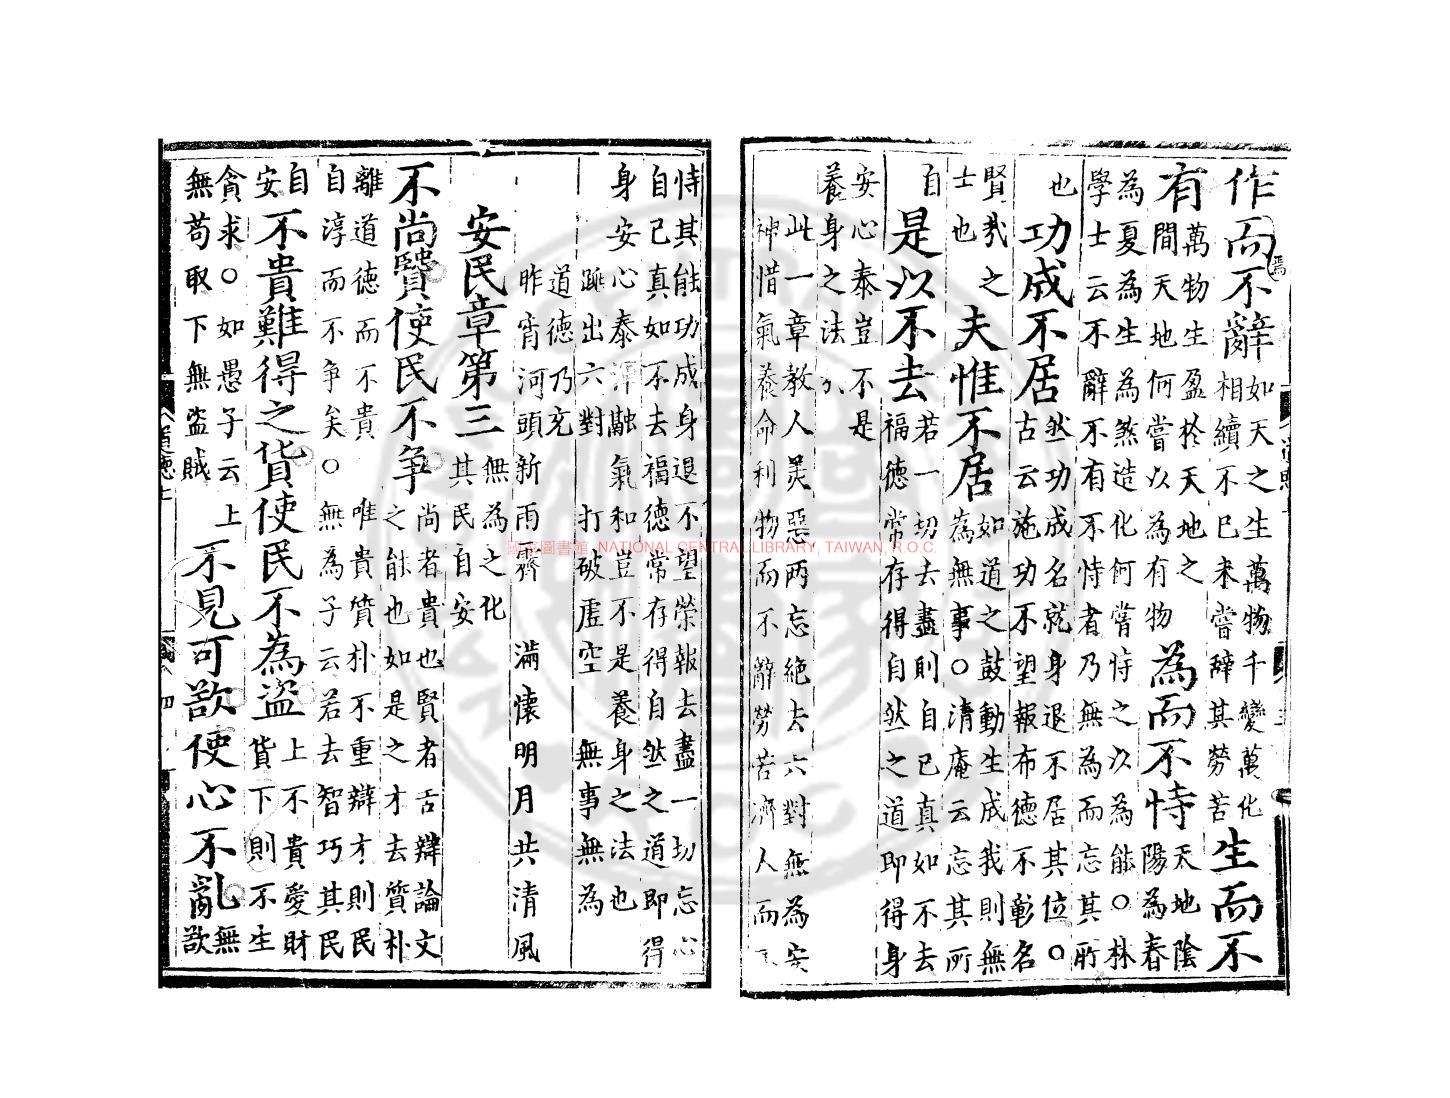 作而不辭
焉
如天之生萬物千變萬化
相續不已未嘗辭其勞苦
生而不
有
萬物生盈於天地之
間天地何嘗以為有物
為而不恃
天地陰
陽為春
為夏為生為煞造化何嘗恃之以為能○林
學士云不辭不有不恃者乃無為而忘其所
也
功成不居
然功成名就身退不居其位○
古云施功不望報布德不彰名
賢哉之
士也
夫惟不居
如道之鼓動生成我則無
為無事○清庵云忘其所
自
是以不去
若一切去盡則自己真如不去
福德常存得自然之道即得身
安心泰豈不是
養身之法
此一章教人美惡兩忘絕去六對無為安
神惜氣養命利物而不辭勞苦濟人而不
恃其能功成身退不望榮報去盡一切忘心
自己真如不去福德常存得自然之道即得
身安心泰渾融氣和豈不是養身之法也
跳出六對 打破虛空 無事無為
道德乃充
昨宵河頭新雨霽 滿懷明月共清風
安民章第三
無為之化
其民自安
不尚賢使民不争
尚者貴也賢者舌辯論文
之能也如是之才去質朴
離道德而不貴 唯貴質朴不重辯才則民
自淳而不争矣○無為子云若去智巧其民
自
安
不貴難得之貨使民不為盜
上不貴愛財
貨下則不生
貪求○如愚子云上
無苟取下無盜賊
不見可欲使心不亂
無
欲
國家圖書館 NATIONAL CENTRAL LIBRARY, TAIWAN, R.O.C.